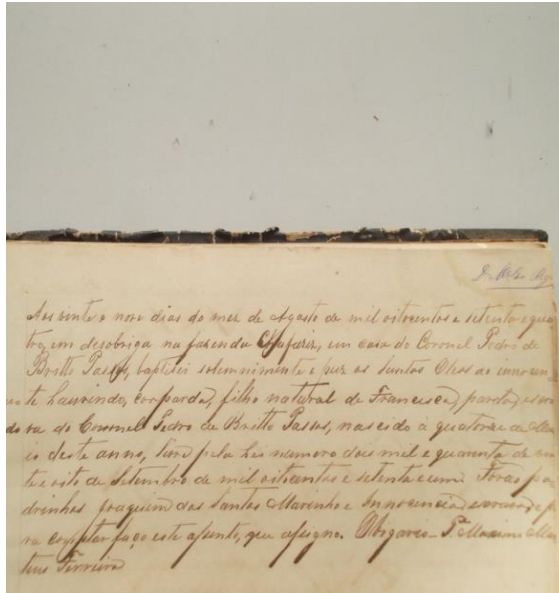 Aos vinte e nove dias do mez de Agosto de mil oitocentos e setenta e qua
tro, em desobriga na fazenda Chafariz, em casa do Coronel Pedro de
Britto Passos, baptisei solemnimente e puz os Santos Oleos ao innocen
te Laurindo, cor parda, filho natural de Francisca, parda, escra
va do Coronel Pedro de Britto Passos, nascido à quatorze de Ma
io deste anno, livre pela Lei numero dois mil e quarenta de vin
te e oito de Setembro de mil oitocentos e setenta e um. Forão pa
drinhos Joaquim dos Santos Marinho e Innocencia, escrava, e pa
ra constar faço este assento, que assigno. O Vigario P.e Maximo Ma
teus Ferreira